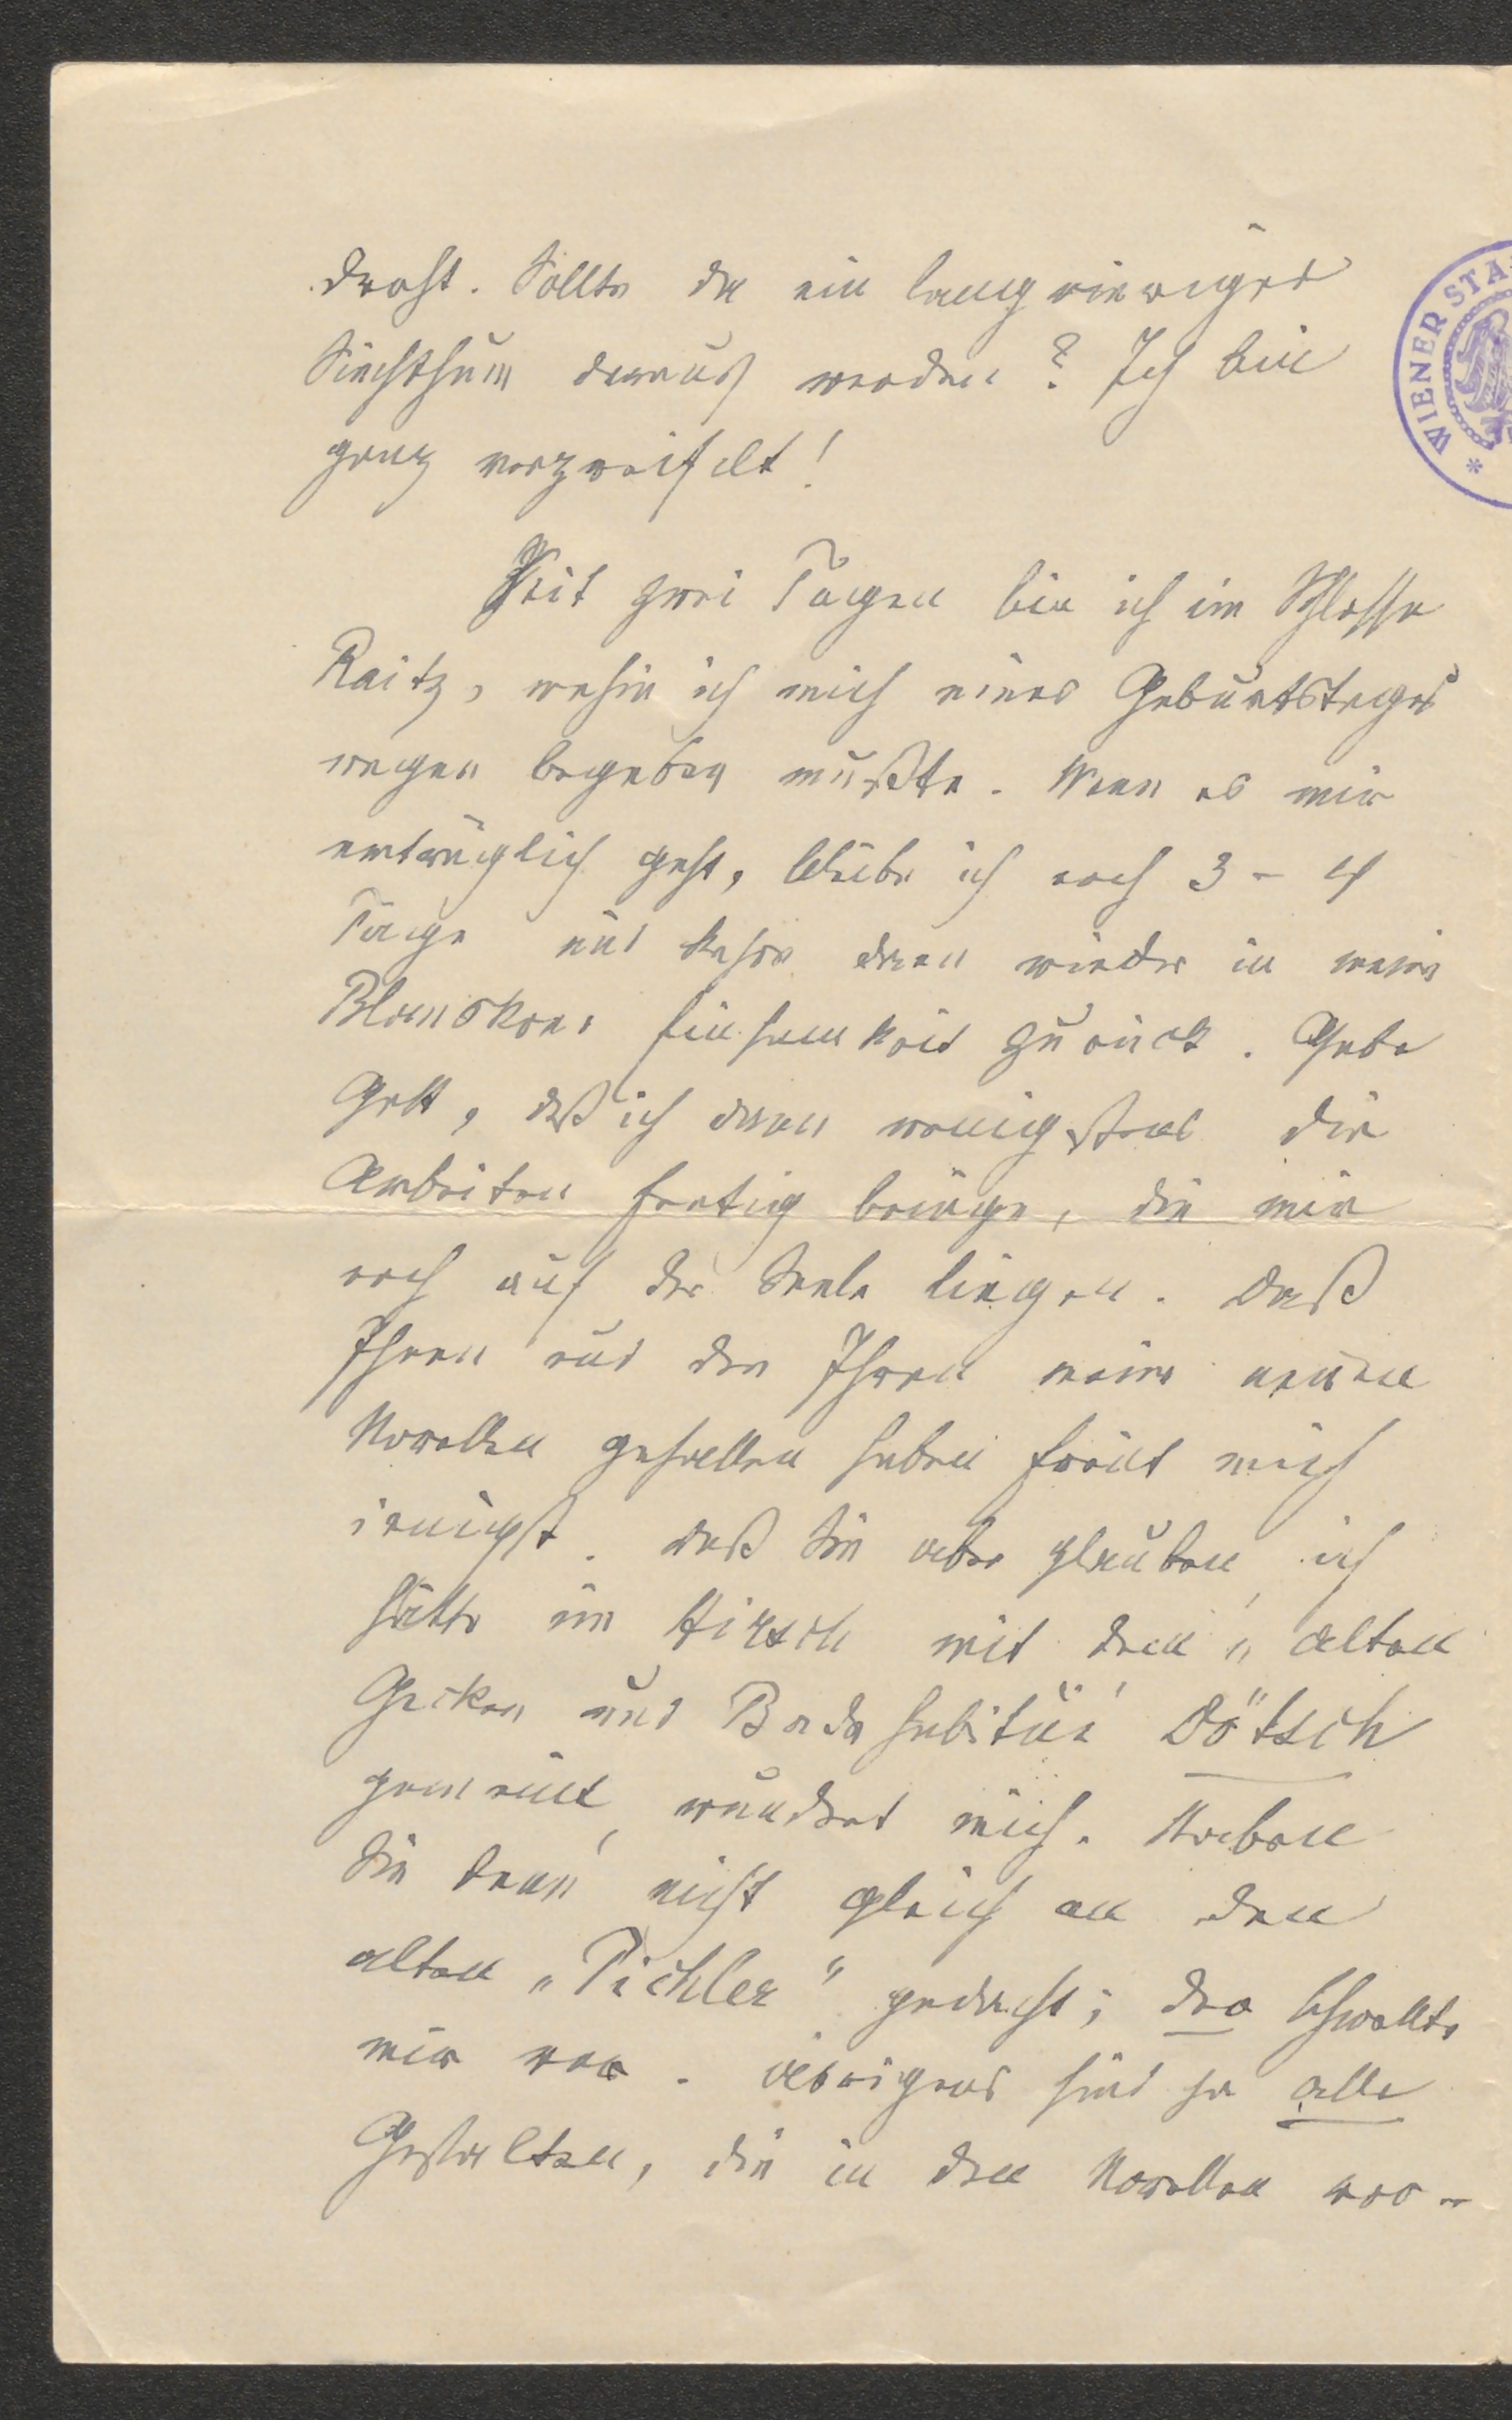 droht. Sollte da ein langwieriges
Siechthum daraus werden? Ich bin
ganz verzweifelt!
Seit zwei Tagen bin ich im Schlosse
Raitz, wohin ich mich eines Geburtstages
wegen begeben mußte. Wenn es mir
erträglich geht, bleibe ich noch 3 - 4
Tage und kehre dann wieder in meine
Blanskoer Einsamkeit zurück. Gebe
Gott, daß ich dann wenigstens die
Arbeiten fertig bringe, die mir
noch auf der Seele liegen. Daß
Ihnen und den Ihren meine neuen
Novellen gefallen haben freut mich
innigst. Daß Sie aber glauben, ich
hätte im Hirsch mit dem „alten
Gecken und Badehabitué" Dötsch
gemeint, wundert mich. Haben
Sie denn nicht gleich an den
alten „Pichler" gedacht; der schwebte
mir vor. Übrigens sind ja alle
Gestalten, die in den Novellen vor-
WIENER STA